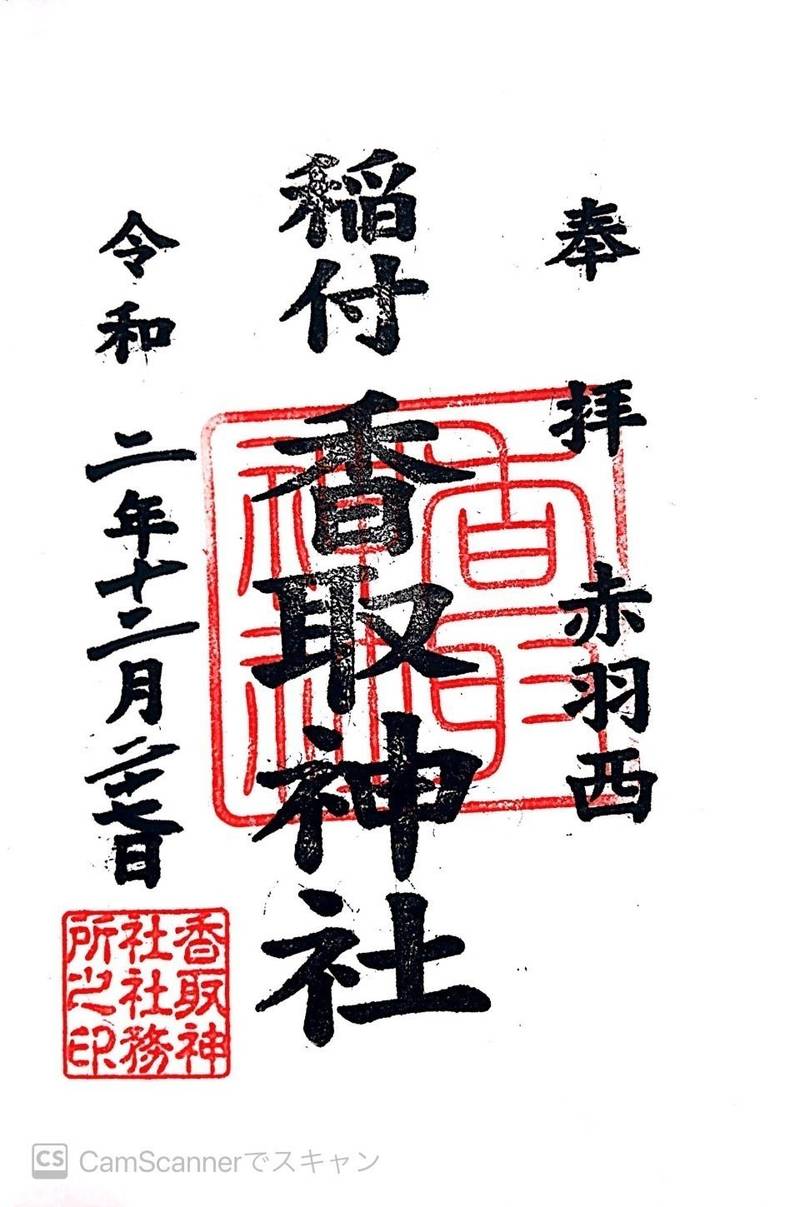 奉拝 赤羽西
稲付 香取神社
令和二年十二月二十七日
香取神
社社務
所之印
香取
神社
CS CamScannerでスキャン